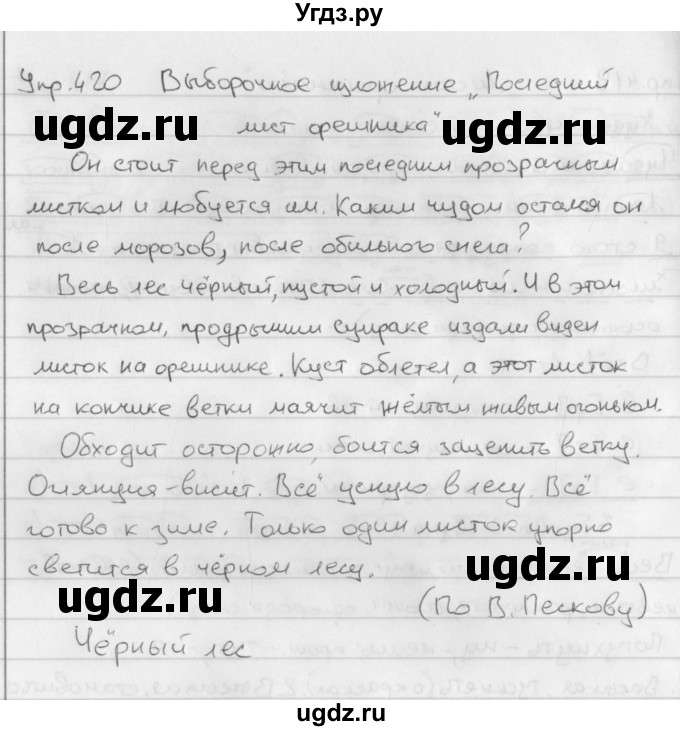 Угдз.ру
Упр.420 Выборочное изложение „Последний
ugdz.ru ugdz.ru
лист орешника“
Он стоит перед этим последним прозрачным
листком и любуется им. Каким чудом остался он
после морозов, после обильного снега?
Весь лес чёрный, пустой и холодный. И в этом
прозрачном, продрогшем сумраке издали виден
листок на орешнике. Куст облетел, а этот листок
на кончике ветки маячит жёлтым живым огоньком.
Обходит осторожно, боится зацепить ветку.
Оглянулся - висит. Всё уснуло в лесу. Всё
готово к зиме. Только один листок упорно
светится в чёрном лесу.
ugdz.ru
ugdz.ru
(По В. Пескову)
Чёрный лес
ugdz.ru